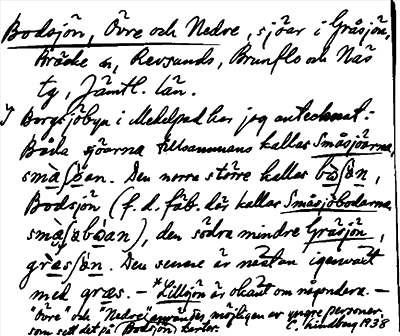 Bodsjön, Övre och Nedre, sjöar i Gråsjön,
Bräcke sn, Revsunds, Brunflo och Näs
tg, Jämtl. län.
I Borgsjöbyn i Medelpad har jag antecknat:
Båda sjöarna tillsammans kallas Småsjöarna,
Den norra större kallas
Bodsjön (f. d. fäb. där kallas Småsjöbodarna
den södra mindre Gråsjön,
Den senare är nästan igenväxt
med gräs. – *Lillsjön är okänt om någondera. –
"Övre" och "Nedre" användes möjligen av yngre personer
som sett det på (Bodsjön) kartor. C. Lindberg 1938